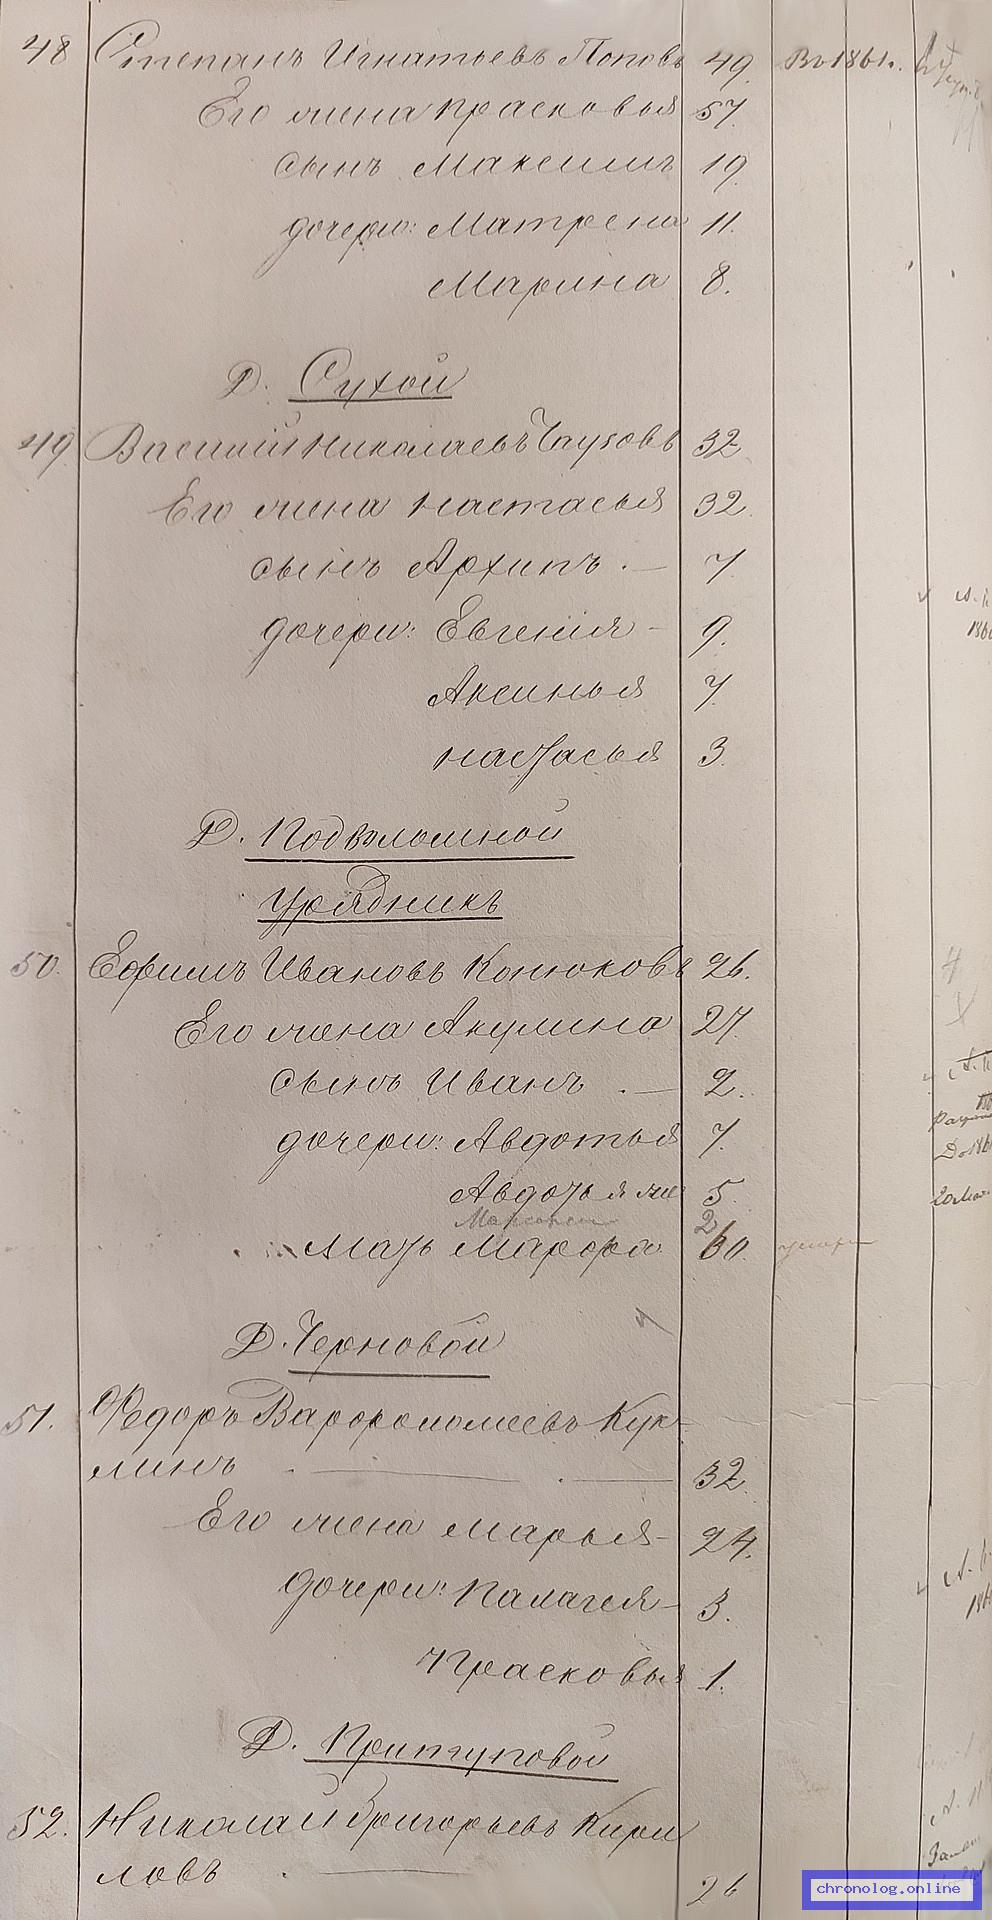 48 Степанъ Игнатьевъ Поповъ 49. Въ 1861 г.
Его жена Прасковья 57
сынъ Максимъ 19.
дочери: Матрена 11.
Марина 8.
Д. Сухой
49 Василій Николаевъ Чаузовъ 32
Его жена Настасья 32.
сынъ Архипъ . — 7.
дочери: Евгенія — 9.
Аксинья 7.
Настасья 3.
Д. Подволошной
Урядникъ
50. Ефимъ Ивановъ Конюховъ 26.
Его жена Акулина 27.
сынъ Иванъ . — 2.
дочери: Авдотья 7.
Авдотья же 5.
Мать Марфа 60. умерла
Д. Черновой
51. Федоръ Варфоломеевъ Кук-
линъ . — . — 32.
Его жена Марья — 24.
дочери: Палагея — 3.
Прасковья 1.
Д. Притуповой
52. Николай Григорьевъ Кири
ловъ . — 26
chronolog.online